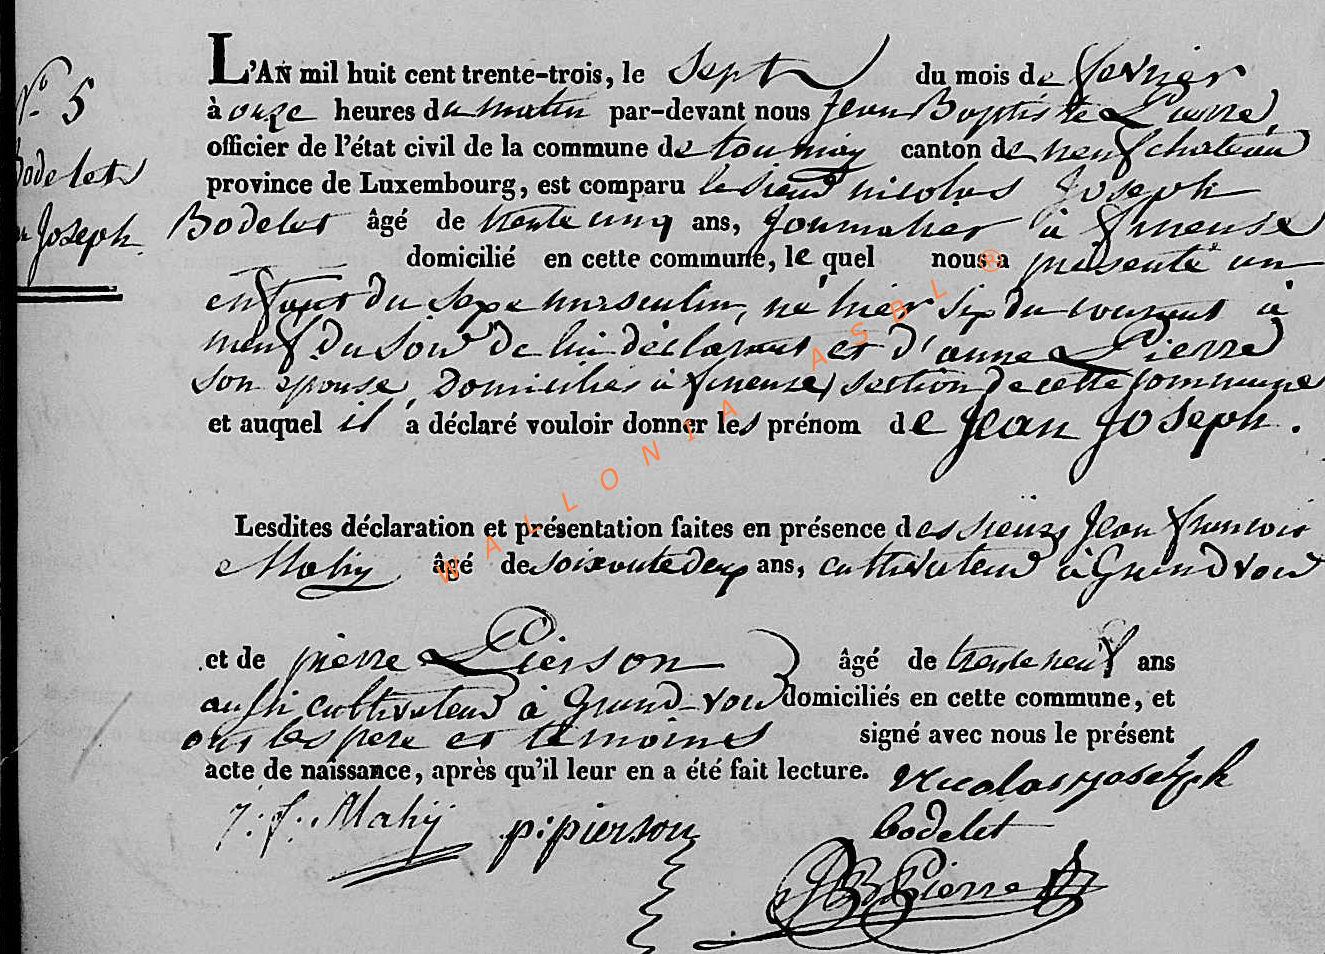 N° 5
Bodelet
Jean Joseph
L'AN mil huit cent trente-trois, le sept du mois de fevrier
à onze heures du matin par-devant nous Jean Baptiste Pierre,
officier de l'état civil de la commune de tournay canton de neufchateau
province de Luxembourg, est comparu le sieur nicolas Joseph
Bodelet âgé de trente cinq ans, Journalier à fineuse
domicilié en cette commune, le quel nous a présenté un
enfant du sexe masculin, né hier six du courant à
neuf du soir de lui déclarant et d'anne Pierre
son epouse, Domiciliés à fineuse, section de cette Commune
et auquel il a déclaré vouloir donner les prénom de Jean Joseph.
Lesdites déclaration et présentation faites en présence des sieurs Jean françois
Mahy âgé de soixante deux ans, cultivateur à Grandvoir
et de pierre Pierson âgé de trente neuf ans
aussi cultivateur à Grand-voir domiciliés en cette commune, et
ont les pere et témoins signé avec nous le présent
acte de naissance, après qu'il leur en a été fait lecture. Nicolas joseph
bodelet
J. f. Mahÿ p: pierson
JB Pierre
WALLONIA ASBL ®